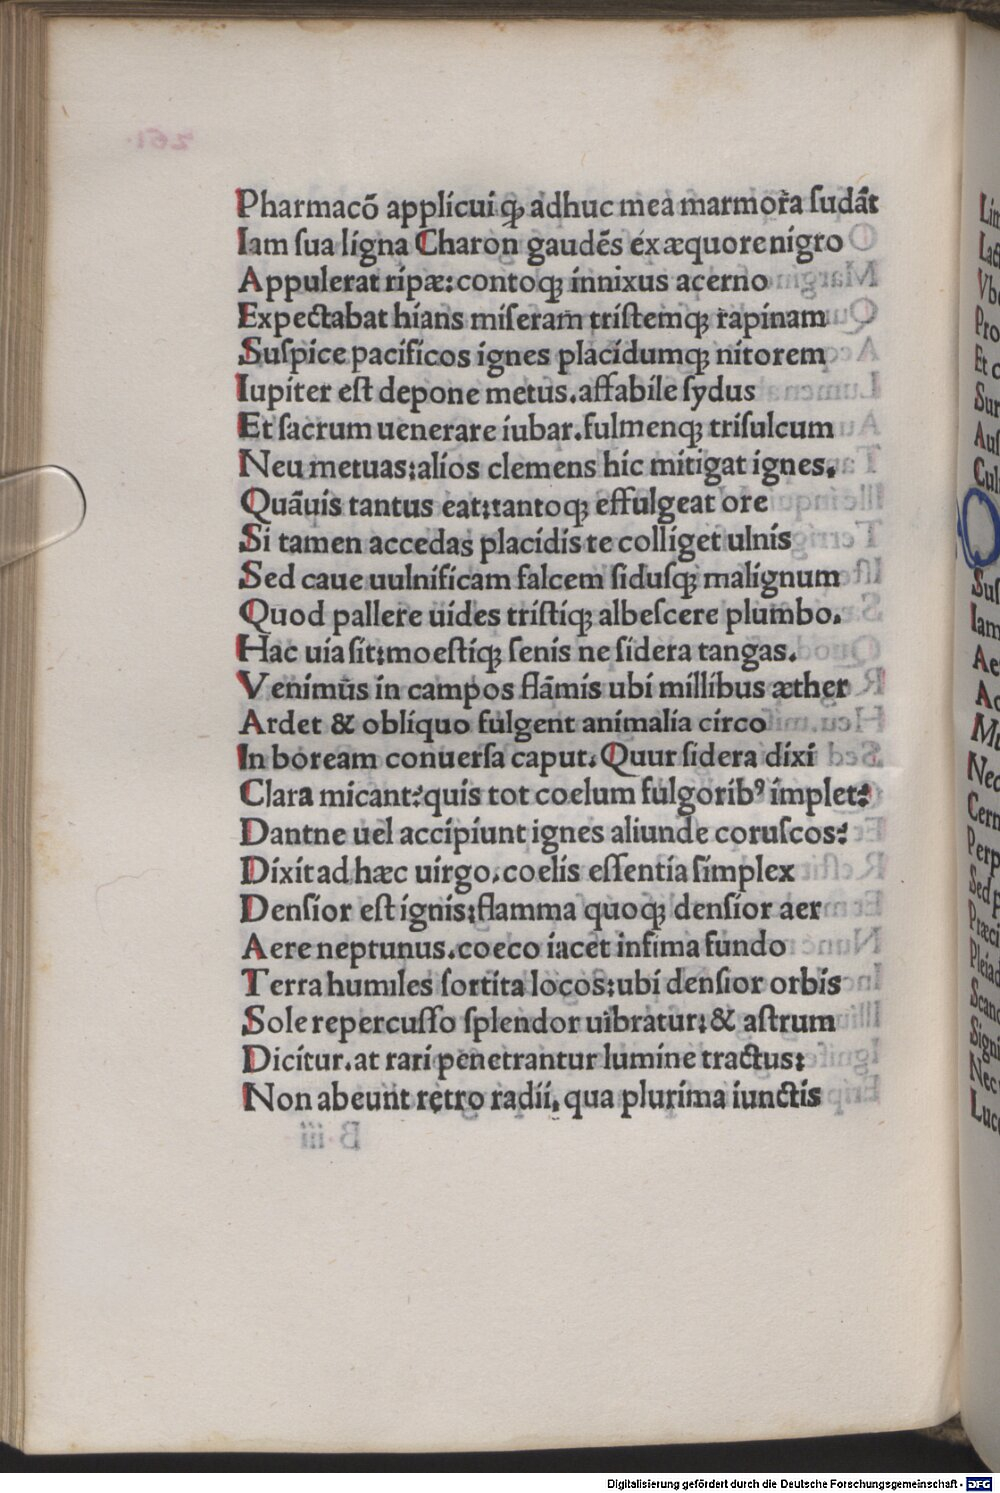 Pharmacō applicui ꝙ adhuc mea marmora ſudāt
Iam ſua ligna Charon gaudēs ex æquore nigro
Appulerat ripæ: contoqꝫ innixus acerno
Expectabat hians miſeram triſtemqꝫ rapinam
Suſpice pacificos ignes placidumqꝫ nitorem
Iupiter eſt depone metus. affabile ſydus
Et ſacrum uenerare iubar. fulmenqꝫ triſulcum
Neu metuas: alios clemens hic mitigat ignes.
Quāuis tantus eat: tantoqꝫ effulgeat ore
Si tamen accedas placidis te colliget ulnis
Sed caue uulnificam falcem ſiduſqꝫ malignum
Quod pallere uides triſtiqꝫ albeſcere plumbo.
Hac uia ſit: moeſtiqꝫ ſenis ne ſidera tangas.
Venimus in campos flāmis ubi millibus æther
Ardet & obliquo fulgent animalia circo
In boream conuerſa caput. Quur ſidera dixi
Clara micant? quis tot coelum fulgoribꝰ implet?
Dantne uel accipiunt ignes aliunde coruſcos?
Dixit ad hæc uirgo. coelis eſſentia ſimplex
Denſior eſt ignis: flamma quoqꝫ denſior aer
Aere neptunus. coeco iacet infima fundo
Terra humiles ſortita locos: ubi denſior orbis
Sole repercuſſo ſplendor uibratur: & aſtrum
Dicitur. at rari penetrantur lumine tractus:
Non abeunt retro radii, qua plurima iunctis
Digitalisierung gefördert durch die Deutsche Forschungsgemeinschaft - DFG